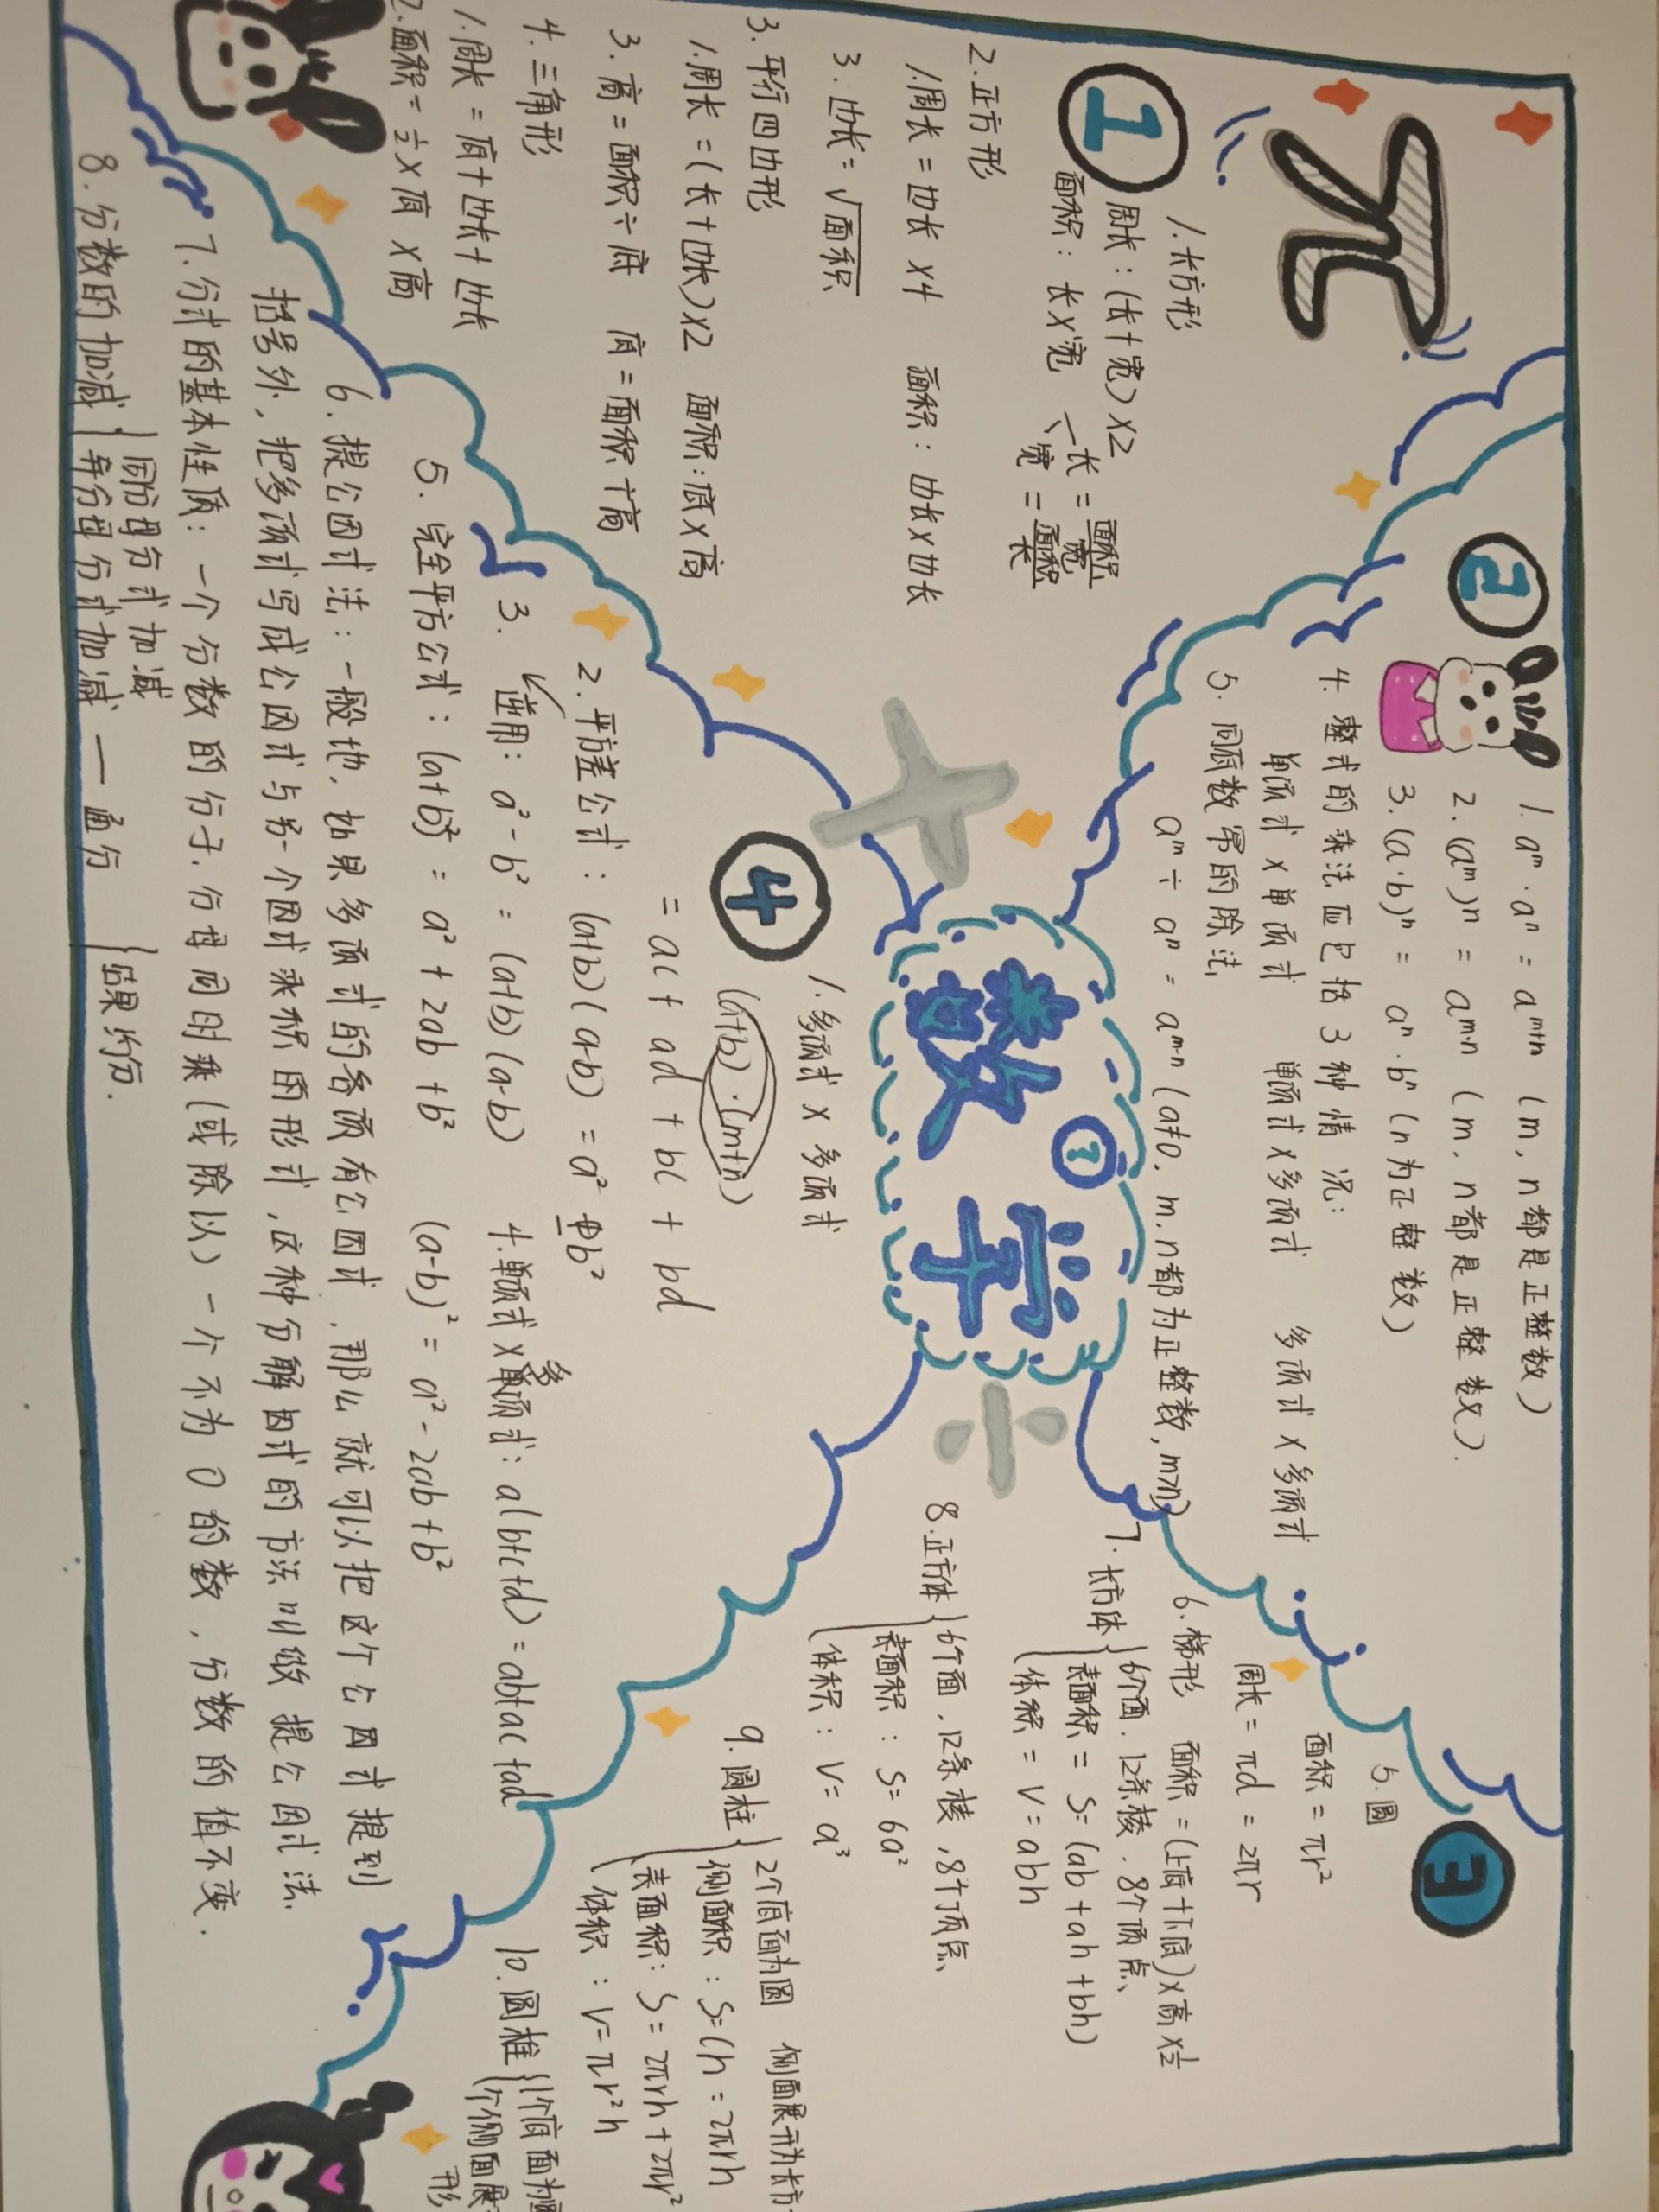 π
1
1.长方形
周长：(长+宽)×2
面积：长×宽
长=面积/宽
宽=面积/长
2.正方形
1.周长=边长×4 面积：边长×边长
3.边长=√面积
3.平行四边形
1.周长=(长+边长)×2 面积：底×高
3.高=面积÷底 底=面积÷高
4.三角形
1.周长=底+边长+边长
2.面积=½×底×高
2
1. aᵐ·aⁿ=aᵐ⁺ⁿ (m,n都是正整数)
2. (aᵐ)ⁿ=aᵐ·ⁿ (m,n都是正整数).
3. (a·b)ⁿ=aⁿ·bⁿ (n为正整数)
4. 整式的乘法应包括3种情况:
单项式×单项式 单项式×多项式 多项式×多项式
5. 同底数幂的除法
aᵐ÷aⁿ=aᵐ⁻ⁿ (a≠0,m,n都为正整数,m>n)
数学
+
÷
3
5.圆
面积=πr²
周长=πd=2πr
6.梯形 面积=(上底+下底)×高×½
7.长方体 6个面,12条棱,8个顶点
表面积=S=(ab+ah+bh)
体积=V=abh
8.正方体 6个面,12条棱,8个顶点
表面积：S=6a²
体积：V=a³
9.圆柱 2个底面为圆 侧面展开为长方
侧面积：S=Ch=2πrh
表面积：S=2πrh+2πr²
体积：V=πr²h
10.圆椎 1个底面为圆
个侧面展
形
4
1.多项式×多项式
(a+b)·(m+n)
=ac+ad+bc+bd
2.平方差公式：(a+b)(a-b)=a²-b²
3. 逆用：a²-b²=(a+b)(a-b) 4.单项式×多项式：a(b+c+d)=ab+ac+ad
5. 完全平方公式：(a+b)²=a²+2ab+b² (a-b)²=a²-2ab+b²
6. 提公因式法：一般地,如果多项式的各项有公因式,那么就可以把这个公因式提到
括号外,把多项式写成公因式与另一个因式乘积的形式,这种分解因式的方法叫做提公因式法.
7. 分式的基本性质：一个分数的分子,分母同时乘(或除以)一个不为0的数,分数的值不变.
8. 分数的加减 同分母分式加减
异分母分式加减—通分
结果约分.